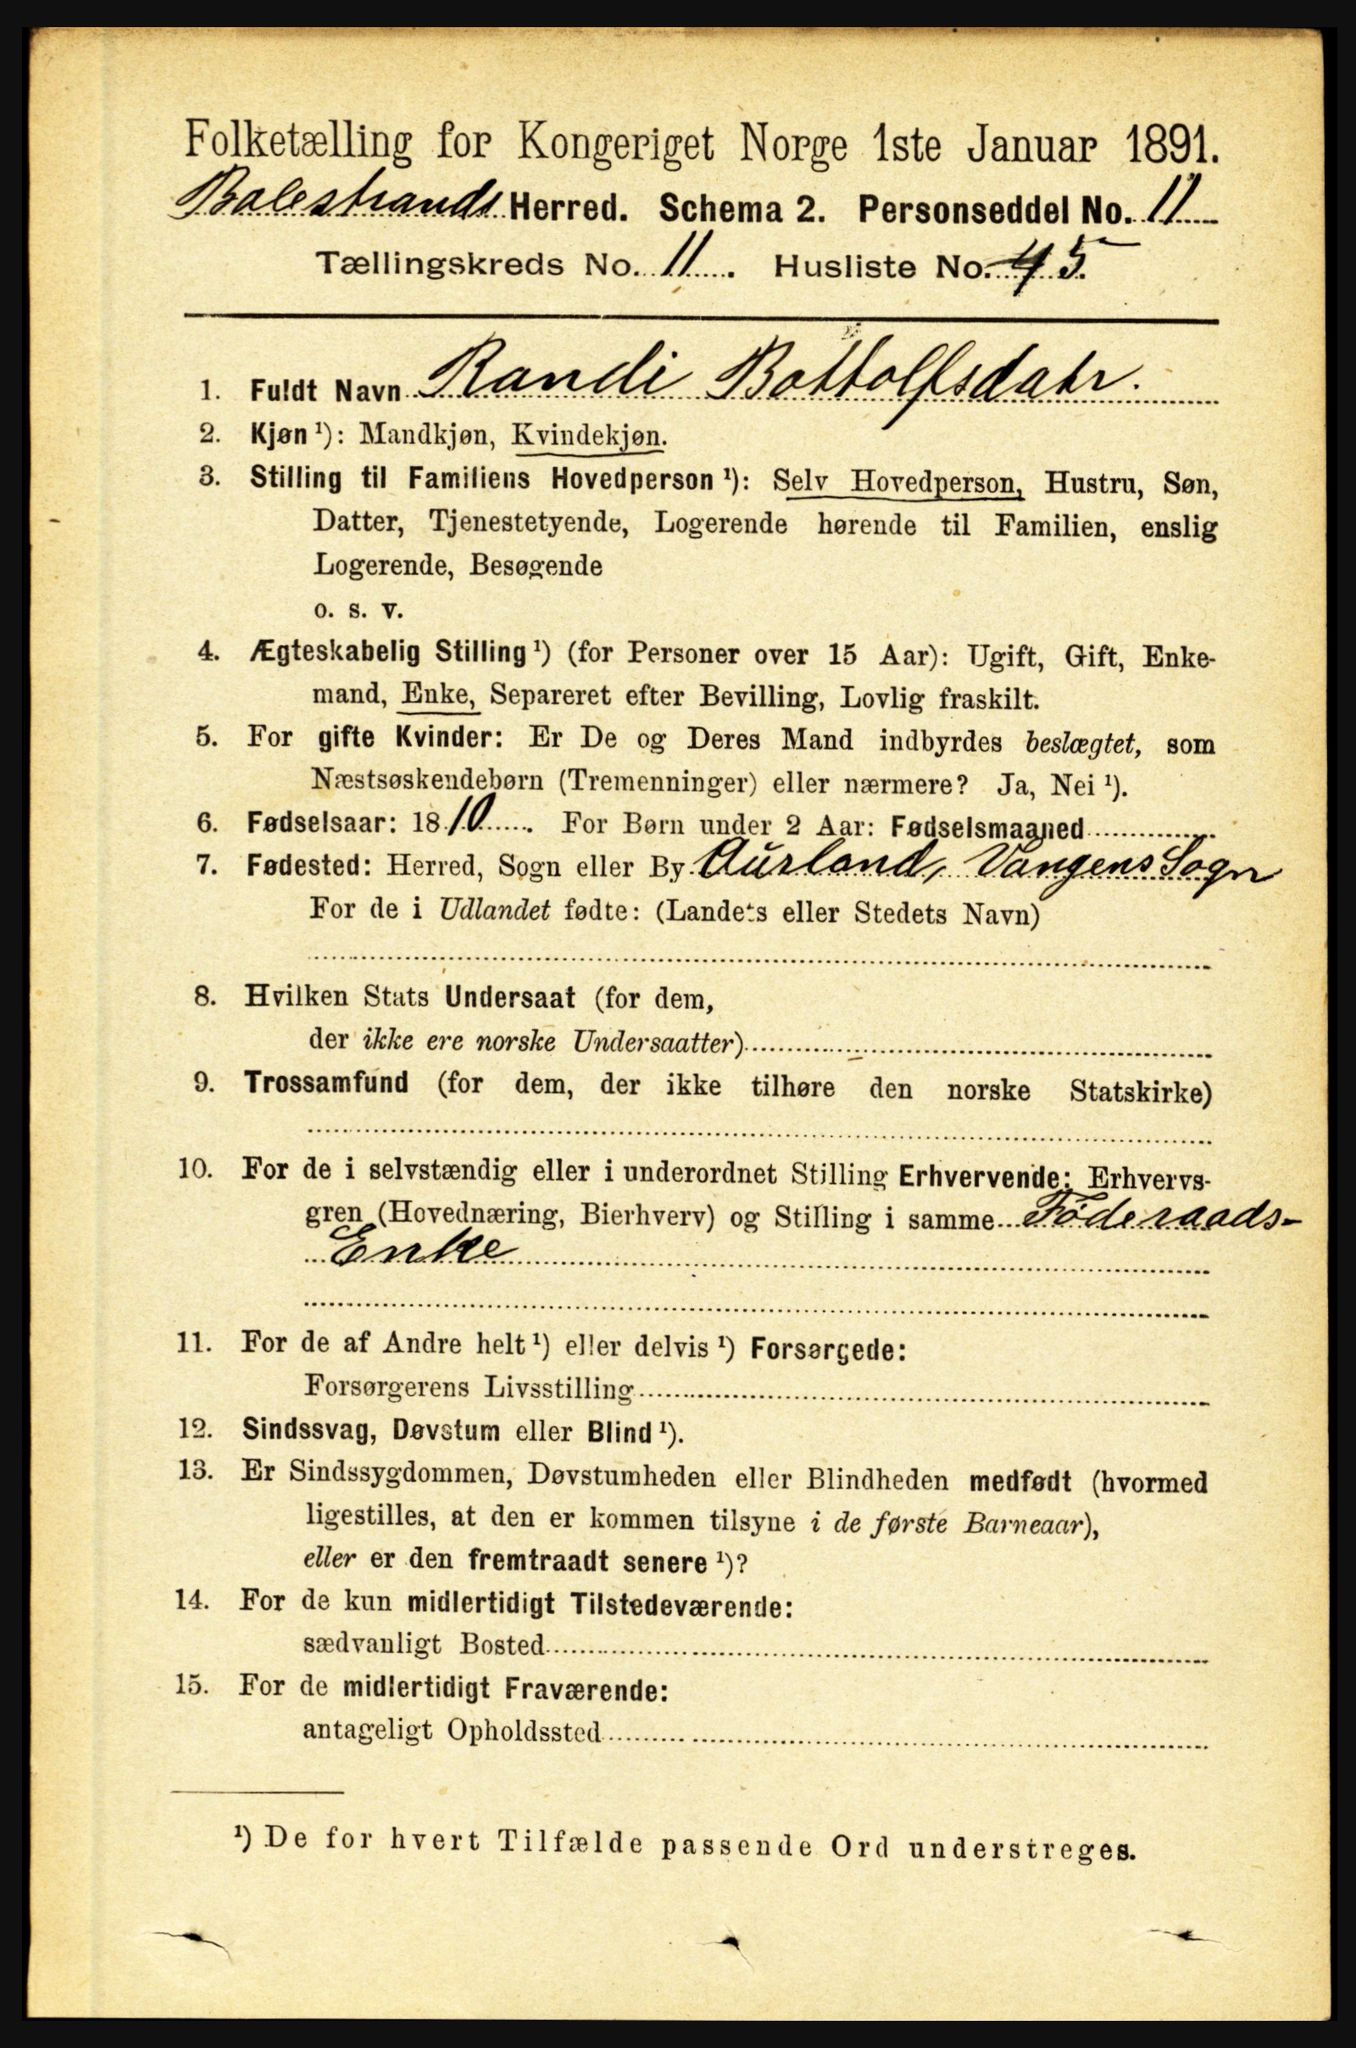 Folketælling for Kongeriget Norge 1ste Januar 1891.
Balestrands Herred. Schema 2. Personseddel No. 11
Tællingskreds No. 11. Husliste No. 45.
1. Fuldt Navn Randi Bottolfsdatr.
2. Kjøn ¹): Mandkjøn, Kvindekjøn.
3. Stilling til Familiens Hovedperson ¹): Selv Hovedperson, Hustru, Søn,
Datter, Tjenestetyende, Logerende hørende til Familien, enslig
Logerende, Besøgende
o. s. v.
4. Ægteskabelig Stilling ¹) (for Personer over 15 Aar): Ugift, Gift, Enke-
mand, Enke, Separeret efter Bevilling, Lovlig fraskilt.
5. For gifte Kvinder: Er De og Deres Mand indbyrdes beslægtet, som
Næstsøskendebørn (Tremenninger) eller nærmere? Ja, Nei ¹).
6. Fødselsaar: 1810. For Børn under 2 Aar: Fødselsmaaned
7. Fødested: Herred, Sogn eller By Aurland, Vangens Sogn
For de i Udlandet fødte: (Landets eller Stedets Navn)
8. Hvilken Stats Undersaat (for dem,
der ikke ere norske Undersaatter)
9. Trossamfund (for dem, der ikke tilhøre den norske Statskirke)
10. For de i selvstændig eller i underordnet Stilling Erhvervende: Erhvervs-
gren (Hovednæring, Bierhverv) og Stilling i samme Föderaads-
Enke
11. For de af Andre helt ¹) eller delvis ¹) Forsørgede:
Forsørgerens Livsstilling
12. Sindssvag, Døvstum eller Blind ¹).
13. Er Sindssygdommen, Døvstumheden eller Blindheden medfødt (hvormed
ligestilles, at den er kommen tilsyne i de første Barneaar),
eller er den fremtraadt senere ¹)?
14. For de kun midlertidigt Tilstedeværende:
sædvanligt Bosted
15. For de midlertidigt Fraværende:
antageligt Opholdssted
¹) De for hvert Tilfælde passende Ord understreges.